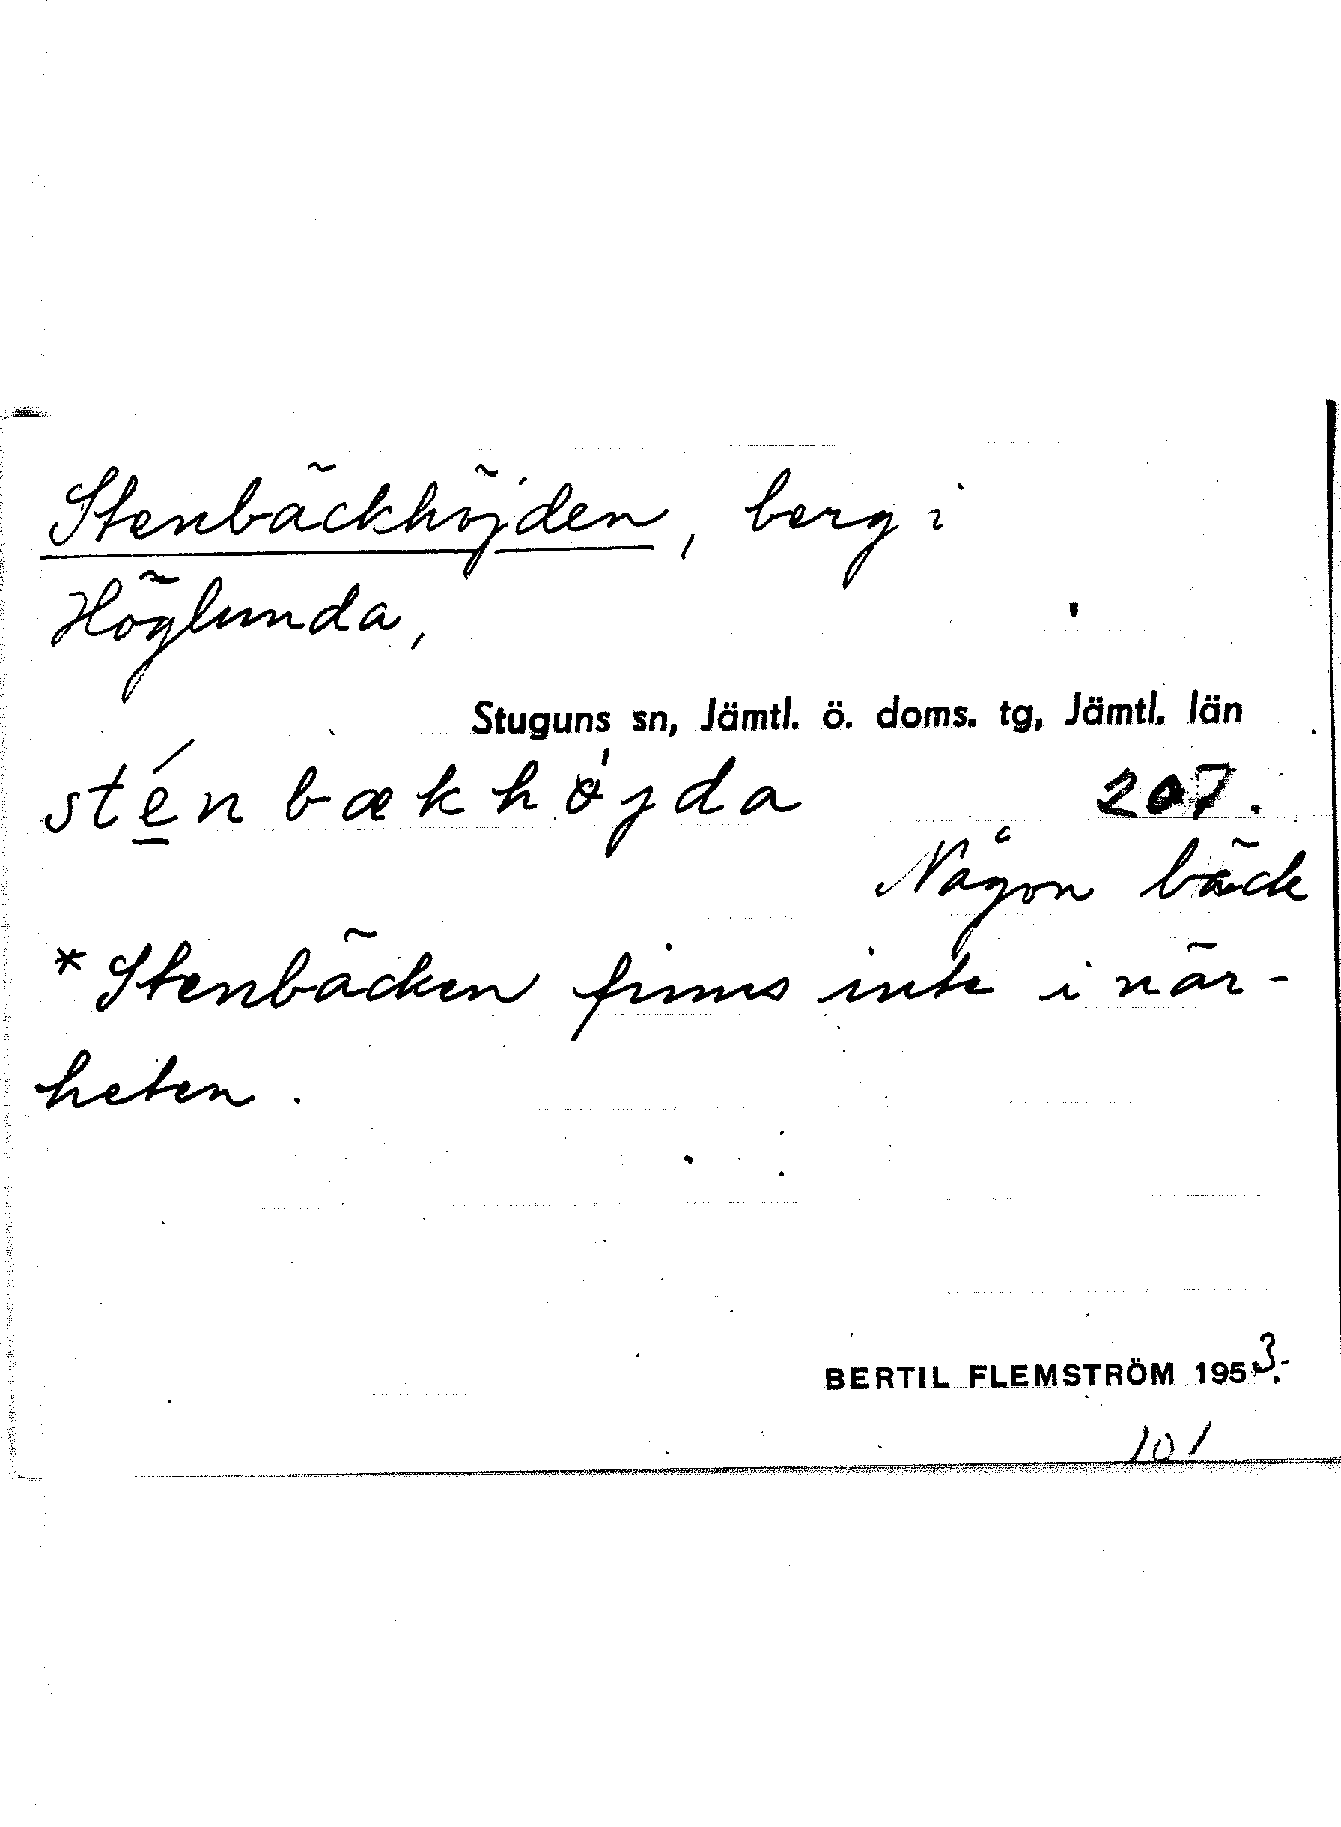 Stenbäckhöjden, berg i
Höglunda,
Stuguns sn, Jämtl. ö. doms. tg, Jämtl. län
sté̱nbækhöjda 207.
Någon bäck
*Stenbäcken finns inte i när-
heten.
BERTIL FLEMSTRÖM 1953.
101